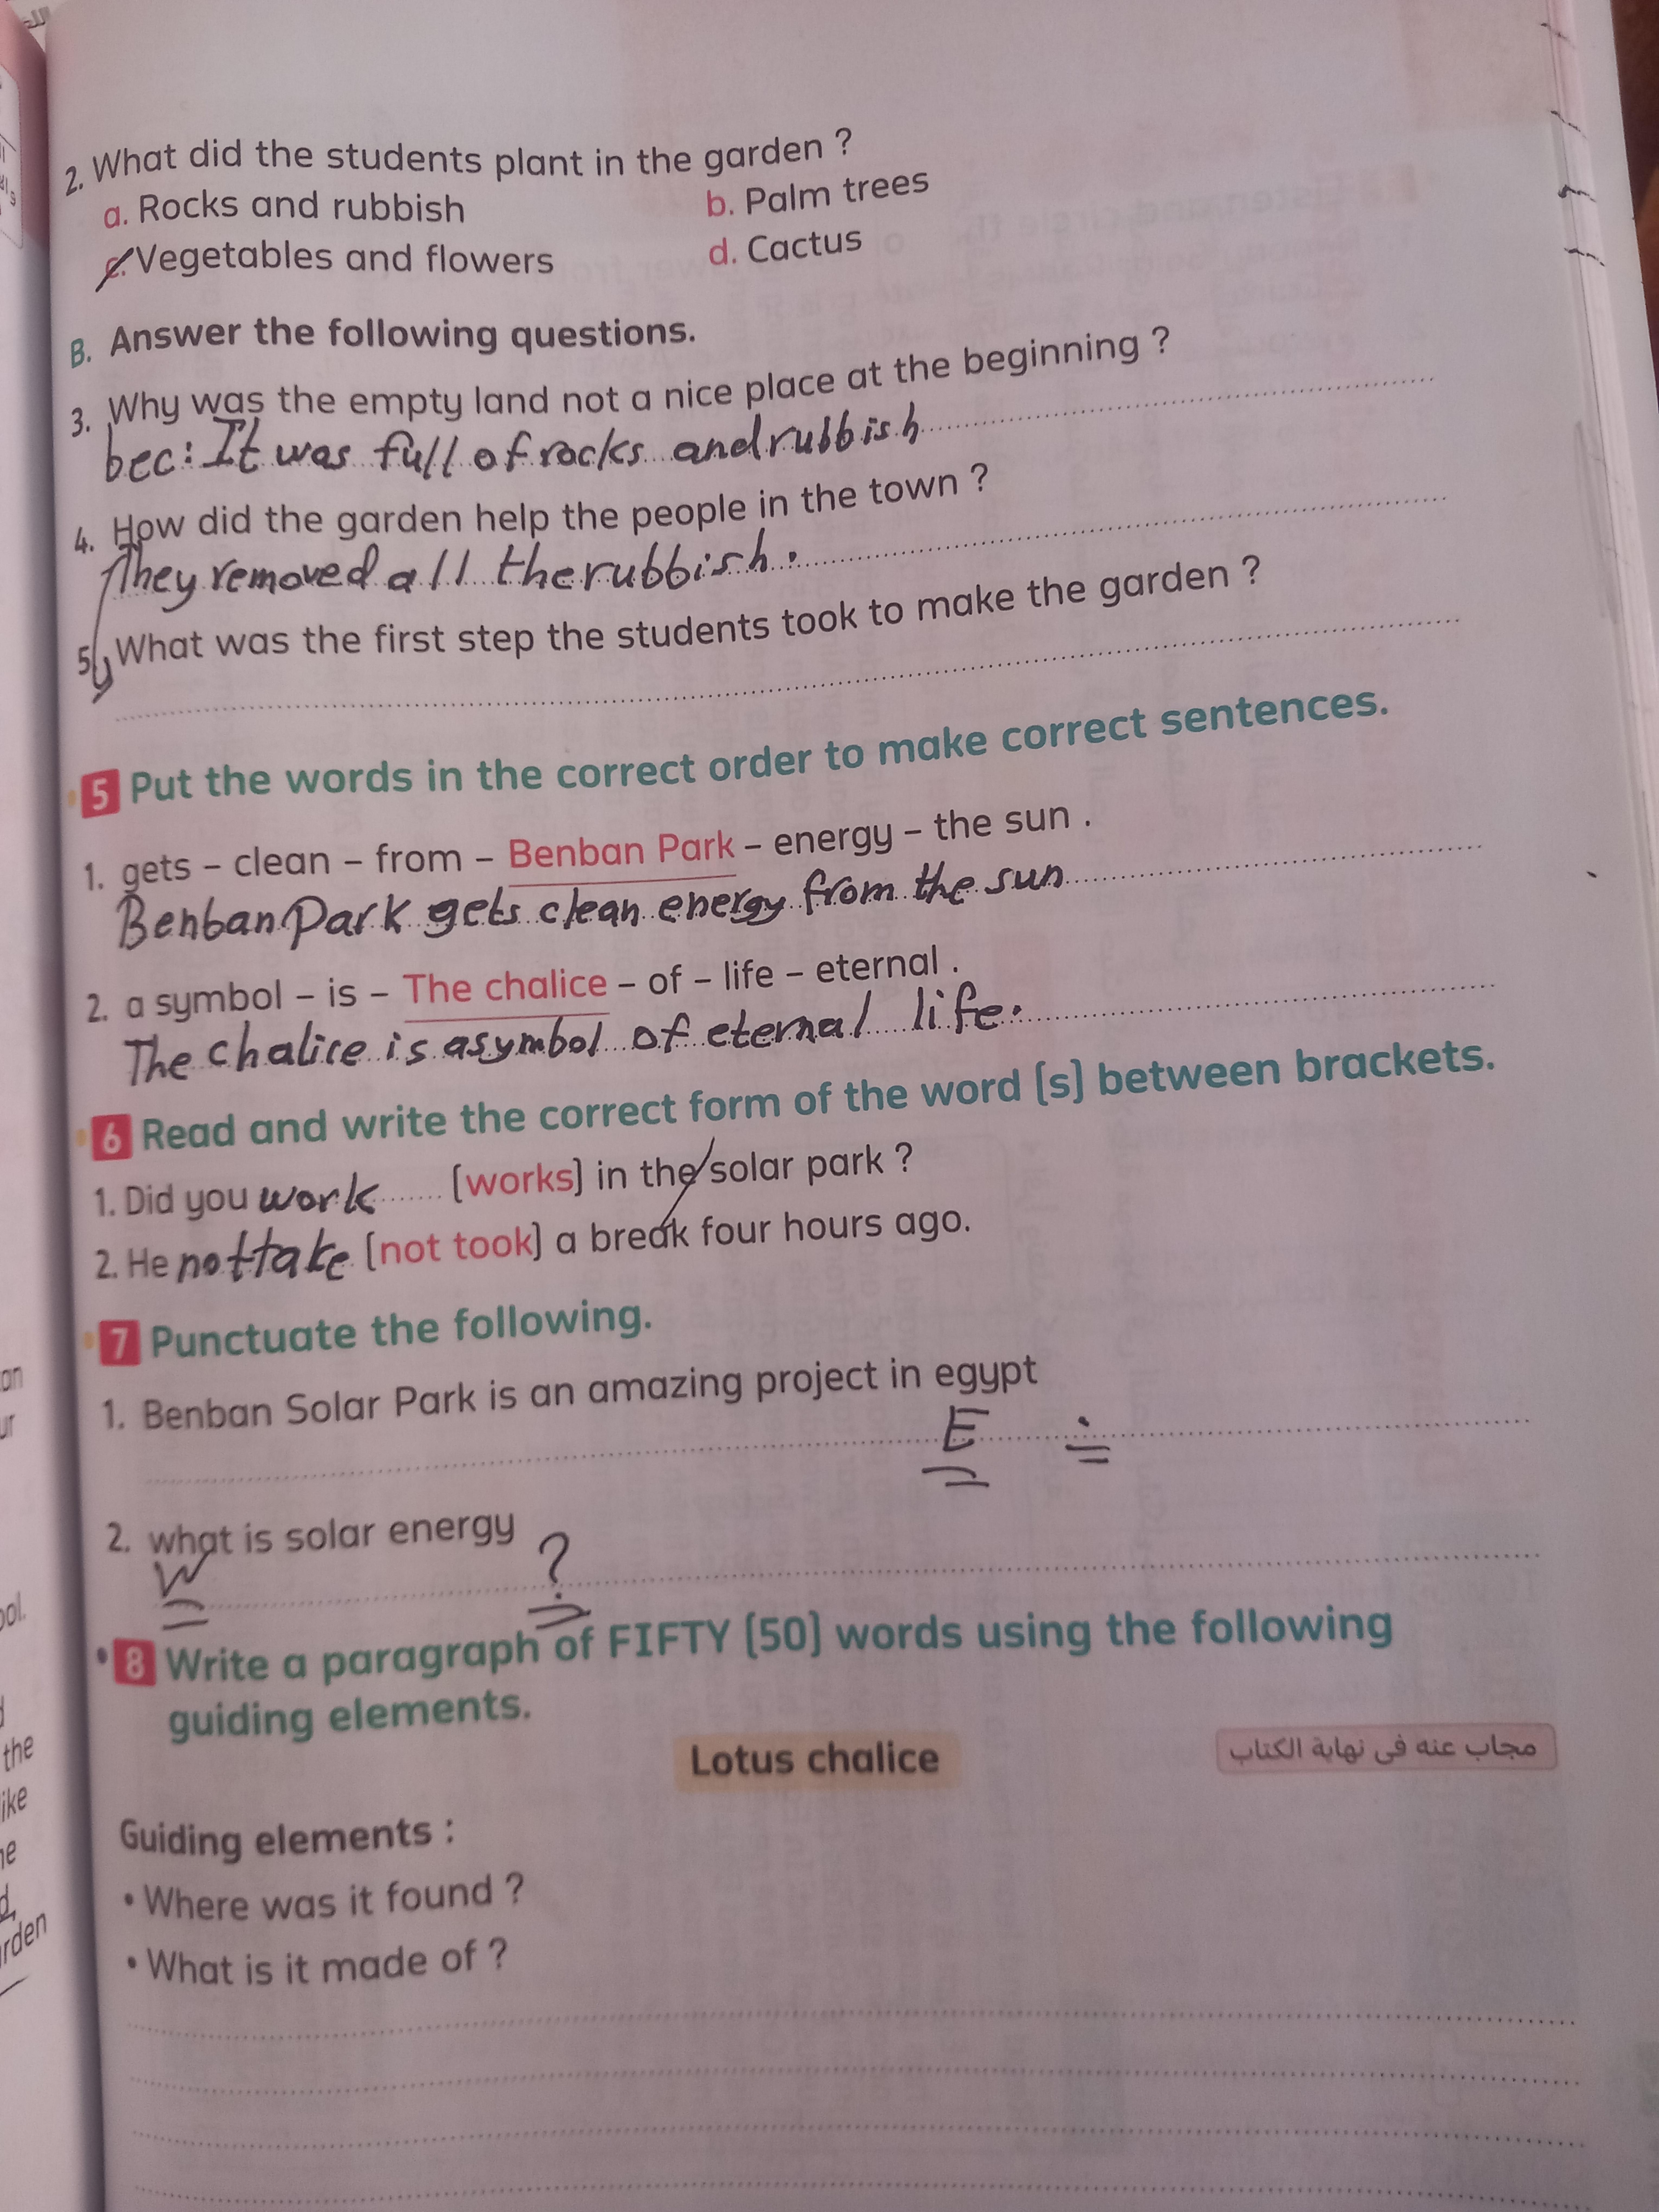 2. What did the students plant in the garden ?
a. Rocks and rubbish
b. Palm trees
c. Vegetables and flowers
d. Cactus
B. Answer the following questions.
3. Why was the empty land not a nice place at the beginning ?
bec: It was full of rocks and rubbish
4. How did the garden help the people in the town ?
They removed all the rubbish.
5. What was the first step the students took to make the garden ?
5 Put the words in the correct order to make correct sentences.
1. gets – clean – from – Benban Park – energy – the sun .
Benban Park gets clean energy from the sun
2. a symbol – is – The chalice – of – life – eternal .
The chalice is a symbol of eternal life.
6 Read and write the correct form of the word (s) between brackets.
1. Did you work (works) in the solar park ?
2. He not take (not took) a break four hours ago.
7 Punctuate the following.
1. Benban Solar Park is an amazing project in egypt
E .
2. what is solar energy
W ?
8 Write a paragraph of FIFTY (50) words using the following
guiding elements.
Lotus chalice
مجاب عنه فى نهاية الكتاب
Guiding elements :
• Where was it found ?
• What is it made of ?
the
rden